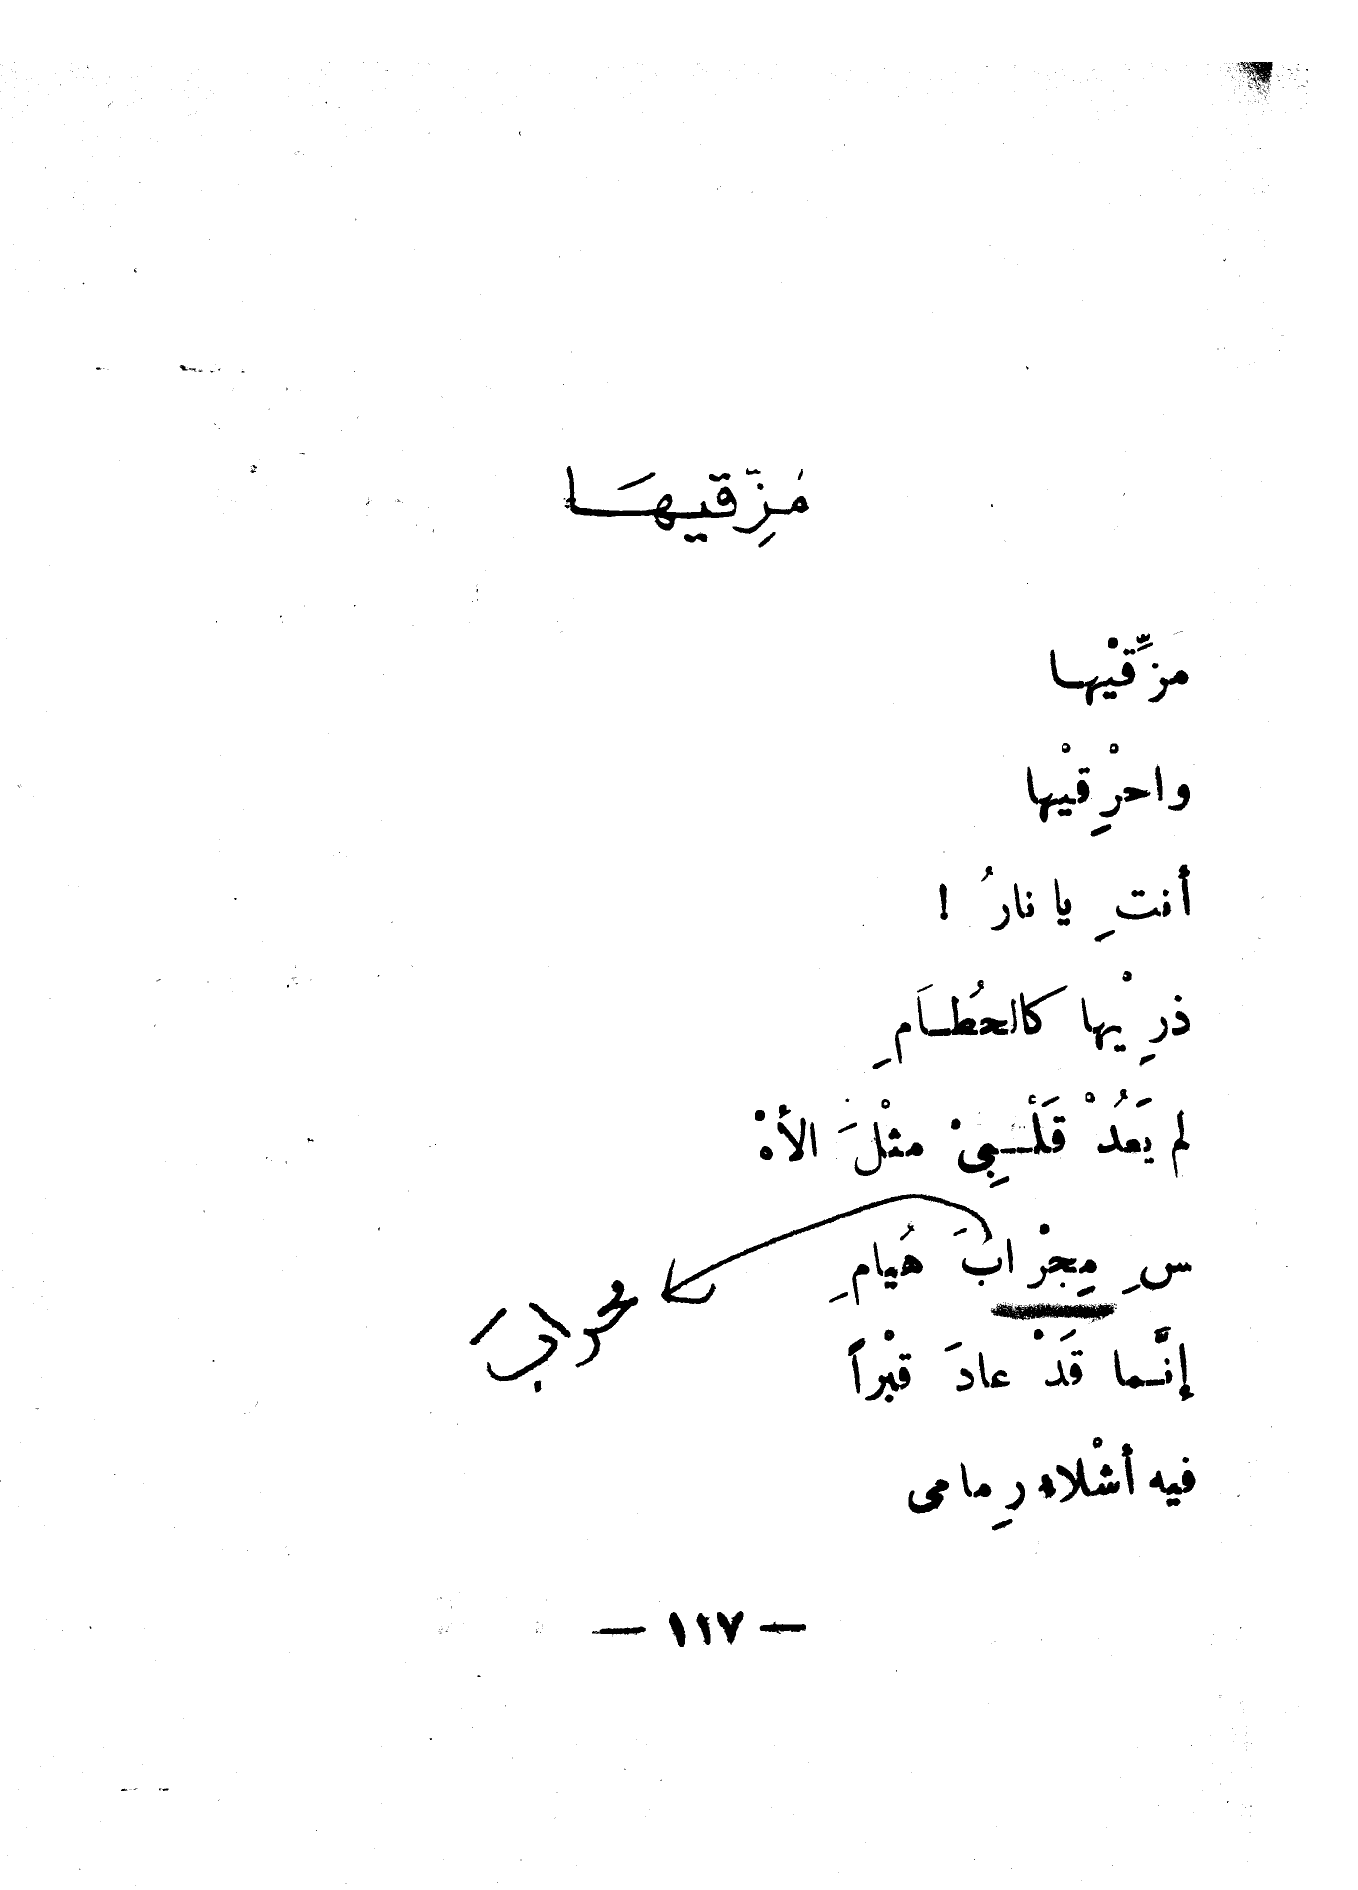 مُزِّقيهَا
مزِّقيْها
واحرْقِيْها
أنتِ يا نارُ !
ذرِيْها كالحُطَامِ
لم يَعُدْ قَلْبِيْ مثْلَ الأمْ
سِ مِجْرابَ هُيامِ
محرابَ
إنَّما قَدْ عادَ قبْراً
فيه أشْلاء رِمامى
— ١١٧ —